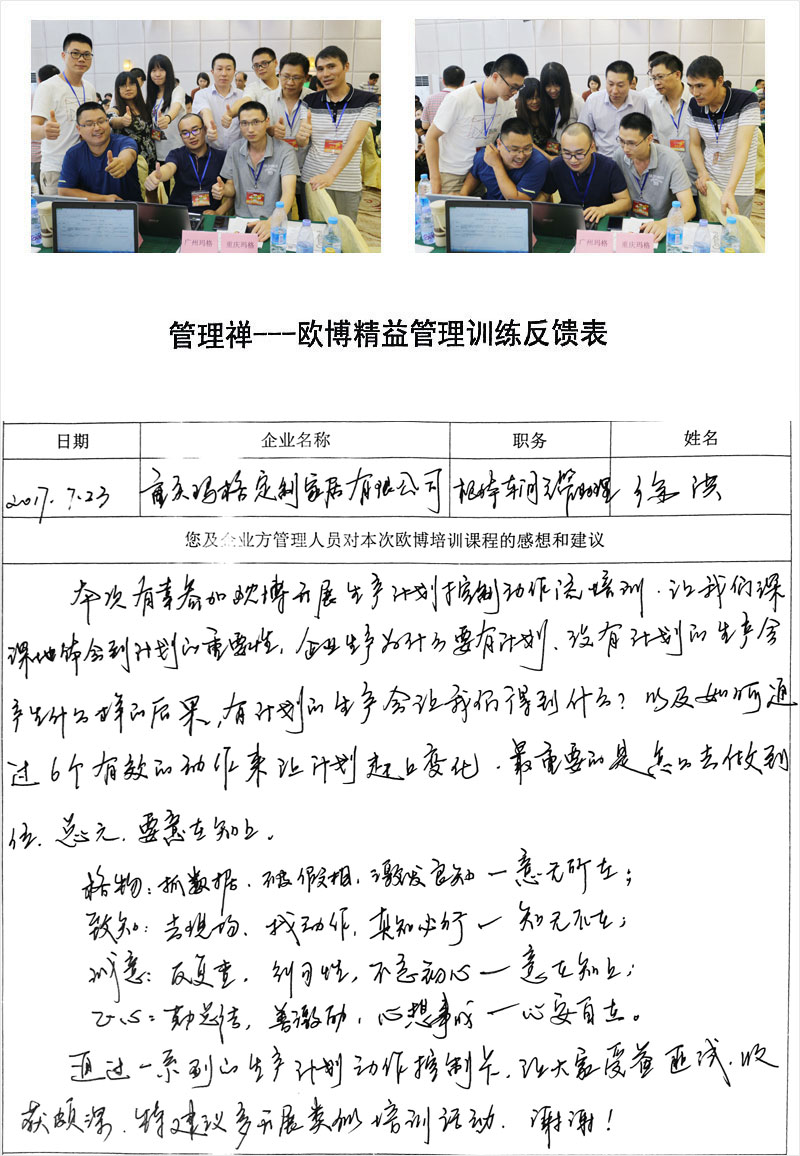 广州玛格 重庆玛格
广州玛格 重庆玛格
管理禅---欧博精益管理训练反馈表
日期 企业名称 职务 姓名
2017.7.23 重庆玛格定制家居有限公司 柜体车间主管助理 徐洪
您及企业方管理人员对本次欧博培训课程的感想和建议
本次有幸参加欧博开展生产计划控制动作流培训.让我们深
深地体会到计划的重要性,企业生产为什么要有计划、没有计划的生产会
产生什么样的后果,有计划的生产会让我们得到什么?以及如何通
过6个有效的动作来让计划起上变化.最重要的是怎么去做到
位.总之,要意在知上。
格物:抓数据.破假相,激发良知一意无所在;
致知:去现场,找动作,真知必行一知无不在;
诚意:反复查,到习性,不忘初心一意在知上;
正心:勤总结,善激励,心想事成一心安自在。
通过一系列的生产计划动作控制卡,让大家受益匪浅,收
获颇深,特建议多开展类似培训活动.谢谢!